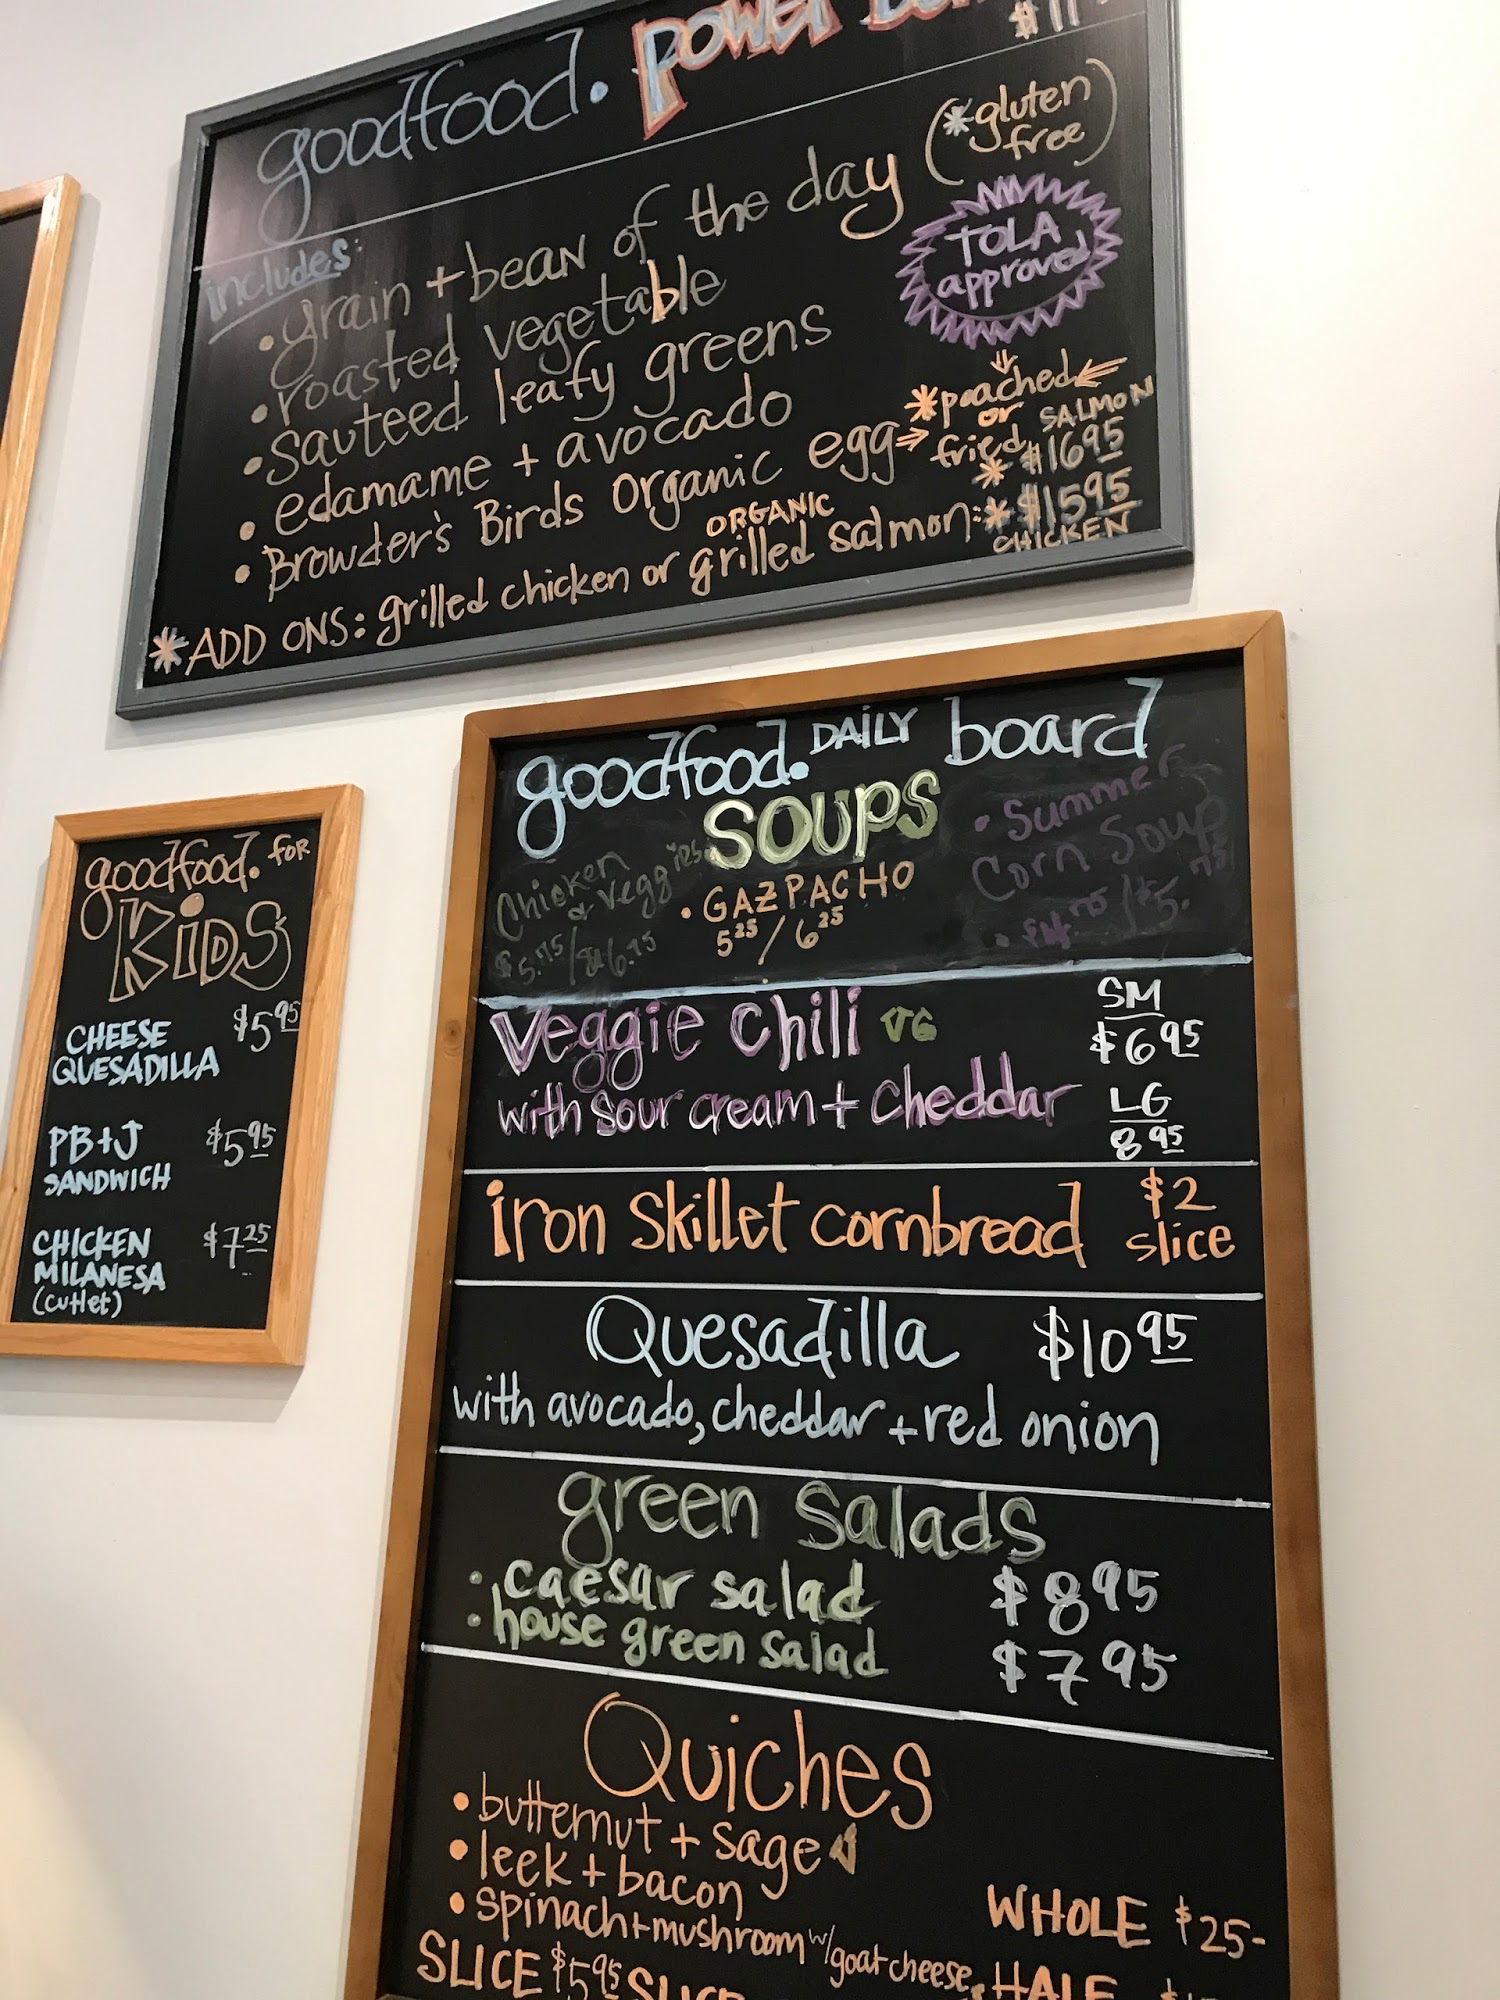 goodfood. power
includes:
• grain + bean of the day (*gluten free)
• roasted vegetable
• sauteed leafy greens
• edamame + avocado
• Browder's Birds organic egg → *poached or fried
TOLA
approved
SALMON
* $16.95
* $15.95
CHICKEN
*ADD ONS: grilled chicken or ORGANIC grilled salmon:
goodfood. FOR
KiDS
CHEESE $5.95
QUESADILLA
PB+J $5.95
SANDWICH
CHICKEN $7.25
MILANESA
(cutlet)
goodfood. DAiLY board
SOUPS
Chicken
& veggies
$5.75/$6.75
• GAZPACHO
5.25/6.25
• Summer
Corn Soup
Veggie chili VG
with sour cream + cheddar
SM
$6.95
LG
8.95
iron skillet cornbread $2
slice
Quesadilla $10.95
with avocado, cheddar + red onion
green salads
• caesar salad $8.95
• house green salad $7.95
Quiches
• butternut + sage
• leek + bacon
• spinach + mushroom w/goat cheese
WHOLE $25-
SLICE $5.95
HALF